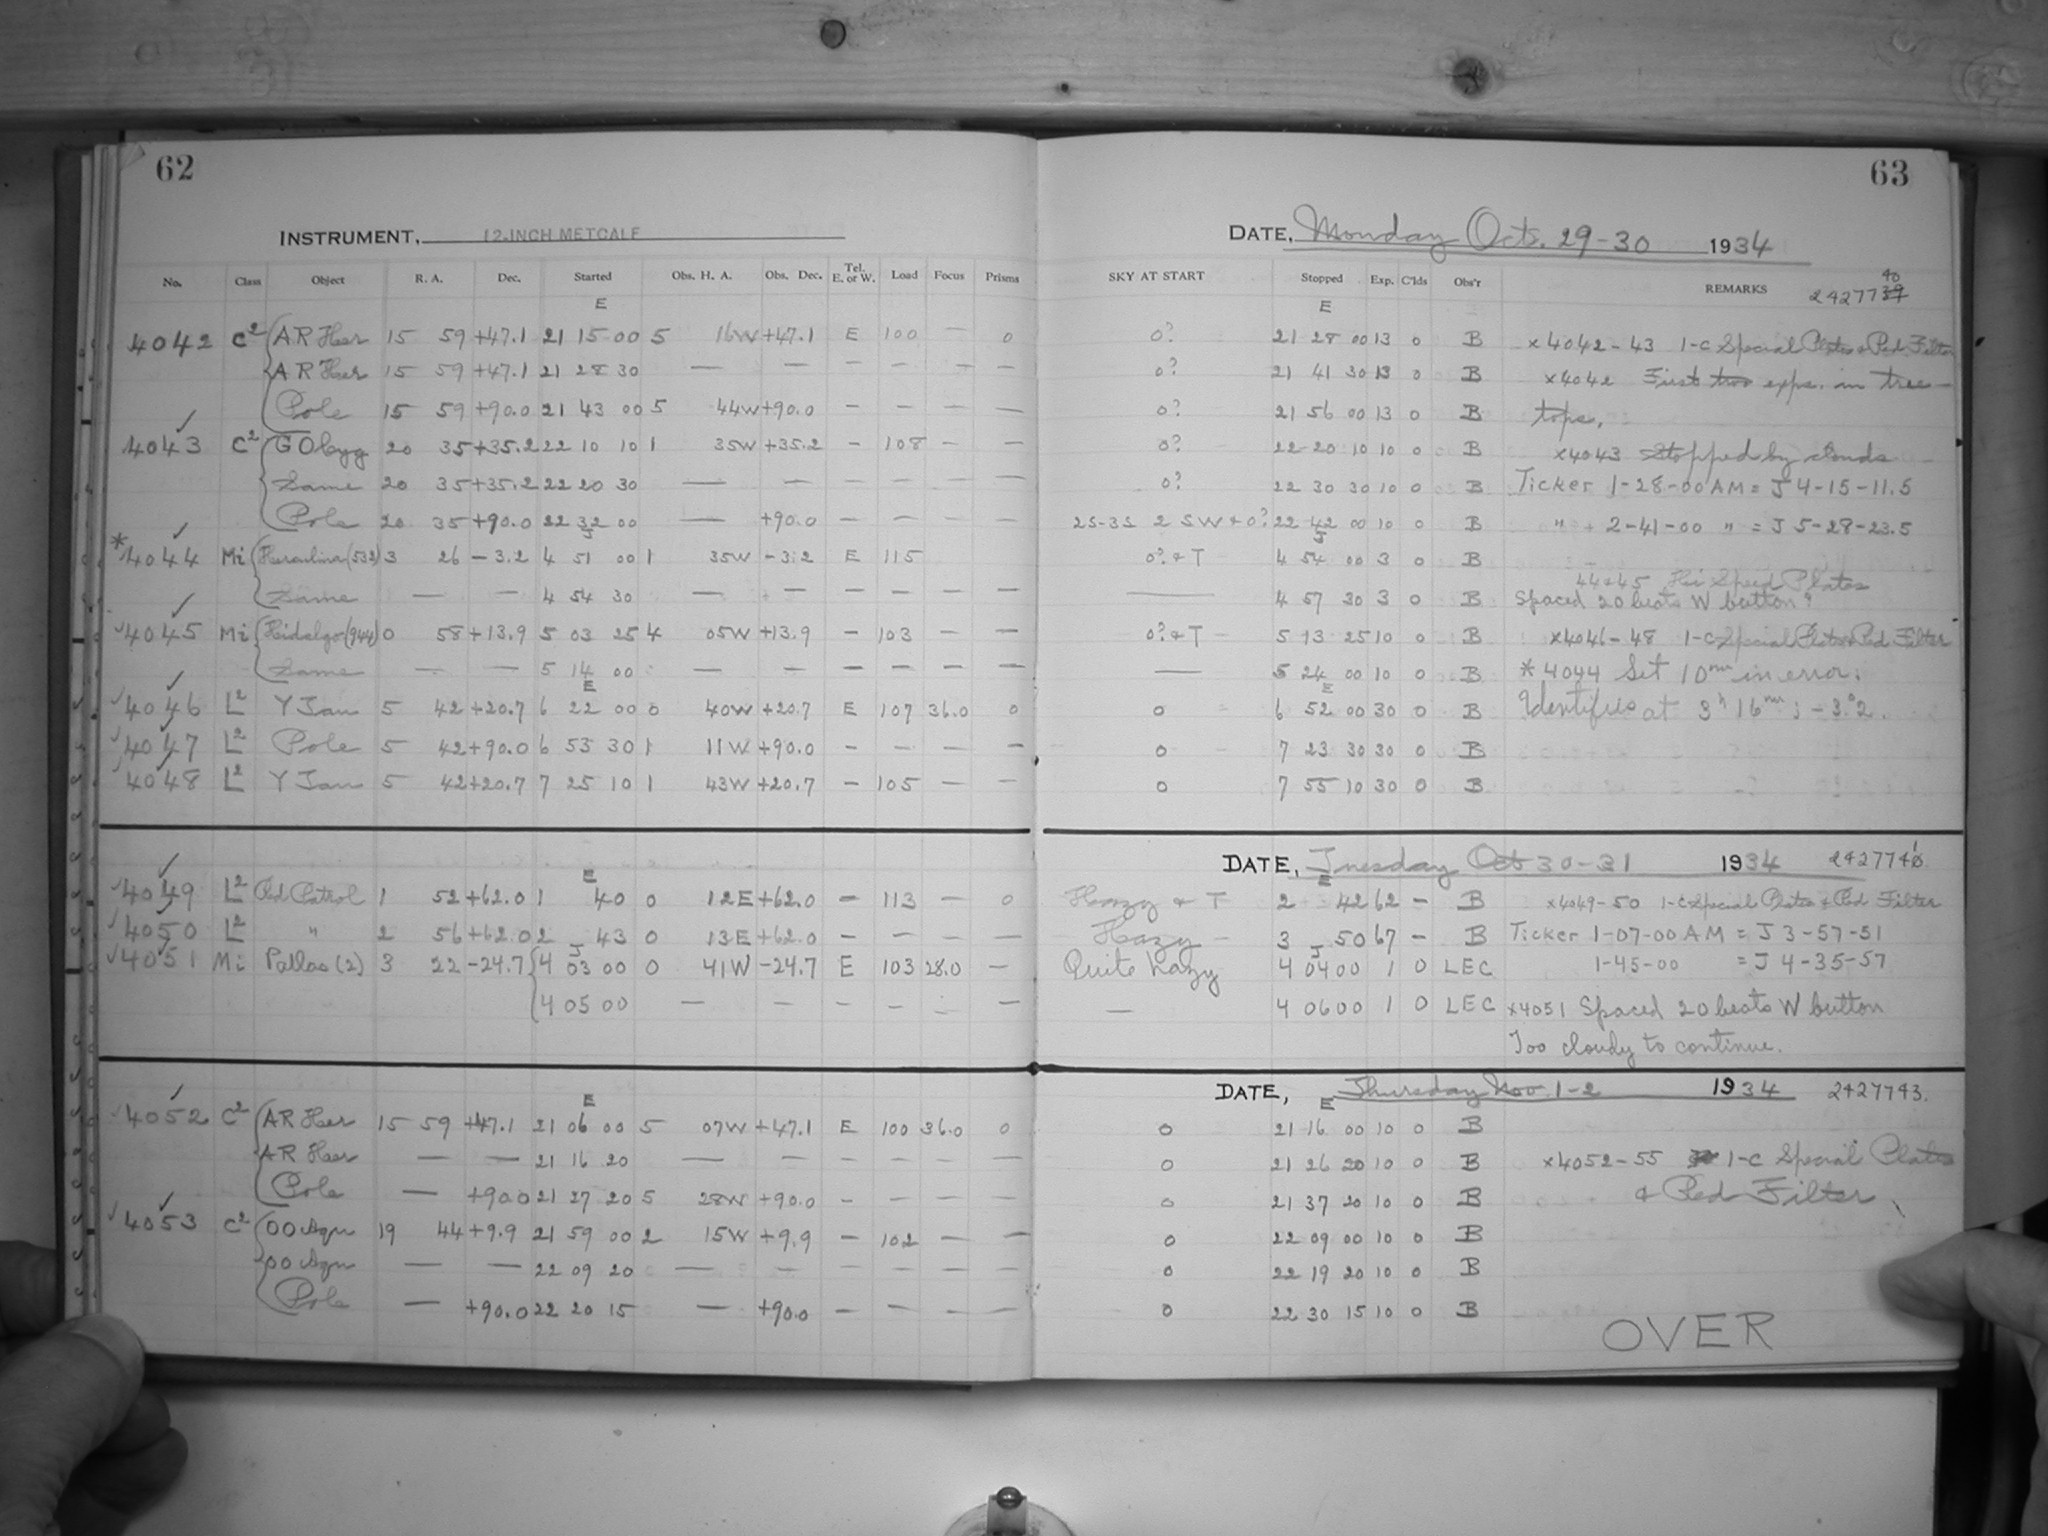 62
INSTRUMENT, 12-INCH METCALF
No. Class Object R. A. Dec. Started Obs. H. A. Obs. Dec. Tel. E. or W. Load Focus Prisms
E
4042 C² AR Her 15 59 +47.1 21 15 00 5 16W +47.1 E 100 — 0
AR Her 15 59 +47.1 21 28 30 — — — — — —
Pole 15 59 +90.0 21 43 00 5 44W +90.0 — — — —
4043 C² GO Cyg 20 35 +35.2 22 10 10 1 35W +35.2 — 108 — —
Same 20 35 +35.2 22 20 30 — — — — — —
Pole 20 35 +90.0 22 32 00 — +90.0 — — — —
J
*4044 Mi Herculina (532) 3 26 -3.2 4 51 00 1 35W -3.2 E 115
Same — — 4 54 30 — — — — — —
4045 Mi Hidalgo (944) 0 58 +13.9 5 03 25 4 05W +13.9 — 103 — —
Same — — 5 14 00 — — — — — —
E
4046 L² Y Tau 5 42 +20.7 6 22 00 0 40W +20.7 E 107 36.0 0
4047 L² Pole 5 42 +90.0 6 53 30 1 11W +90.0 — — — —
4048 L² Y Tau 5 42 +20.7 7 25 10 1 43W +20.7 — 105 — —
E
4049 L² Red Patrol 1 52 +62.0 1 40 0 12E +62.0 — 113 — 0
4050 L² " 2 56 +62.0 2 43 0 13E +62.0 — — — —
J
4051 Mi Pallas (2) 3 22 -24.7 4 03 00 0 41W -24.7 E 103 28.0 —
4 05 00 — — — — — —
E
4052 C² AR Her 15 59 +47.1 21 06 00 5 07W +47.1 E 100 36.0 0
AR Her — — 21 16 20 — — — — — —
Pole — +90.0 21 27 20 5 28W +90.0 — — — —
4053 C² OO Aqu 19 44 +9.9 21 59 00 2 15W +9.9 — 102 — —
OO Aqu — — 22 09 20 — — — — — —
Pole — +90.0 22 20 15 — +90.0 — — — —
63
DATE, Monday Oct. 29-30 1934
SKY AT START Stopped Exp. C'lds Obs'r REMARKS 2427739 40
E
0? 21 28 00 13 0 B x4042-43 1-C Special Plates & Red Filter
0? 21 41 30 13 0 B x4042 First two exps. in tree-
0? 21 56 00 13 0 B tops.
0? 22 20 10 10 0 B x4043 Stopped by clouds
0? 22 30 30 10 0 B Ticker 1-28-00 AM = J 4-15-11.5
2S-3S 2 SW + 0? 22 42 00 10 0 B " 2-41-00 " = J 5-28-23.5
J
0? & T 4 54 00 3 0 B
44 & 45 Hi Speed Plates
— 4 57 30 3 0 B Spaced 20 beats W button?
0? & T 5 13 25 10 0 B x4046-48 1-C Special Plates & Red Filter
— 5 24 00 10 0 B *4044 Set 10ᵐ in error.
E
0 6 52 00 30 0 B Identifies at 3ʰ16ᵐ; -3°.2.
0 7 23 30 30 0 B
0 7 55 10 30 0 B
DATE, Tuesday Oct 30-31 1934 2427741
E
Hazy & T 2 42 62 — B x4049-50 1-C Special Plates & Red Filter
Hazy 3 50 67 — B Ticker 1-07-00 AM = J 3-57-51
J
Quite hazy 4 04 00 1 0 LEC 1-45-00 = J 4-35-57
— 4 06 00 1 0 LEC x4051 Spaced 20 beats W button
Too cloudy to continue.
DATE, Thursday Nov. 1-2 1934 2427743.
E
0 21 16 00 10 0 B
0 21 26 20 10 0 B x4052-55 1-C Special Plates
0 21 37 20 10 0 B & Red Filter
0 22 09 00 10 0 B
0 22 19 20 10 0 B
0 22 30 15 10 0 B
OVER